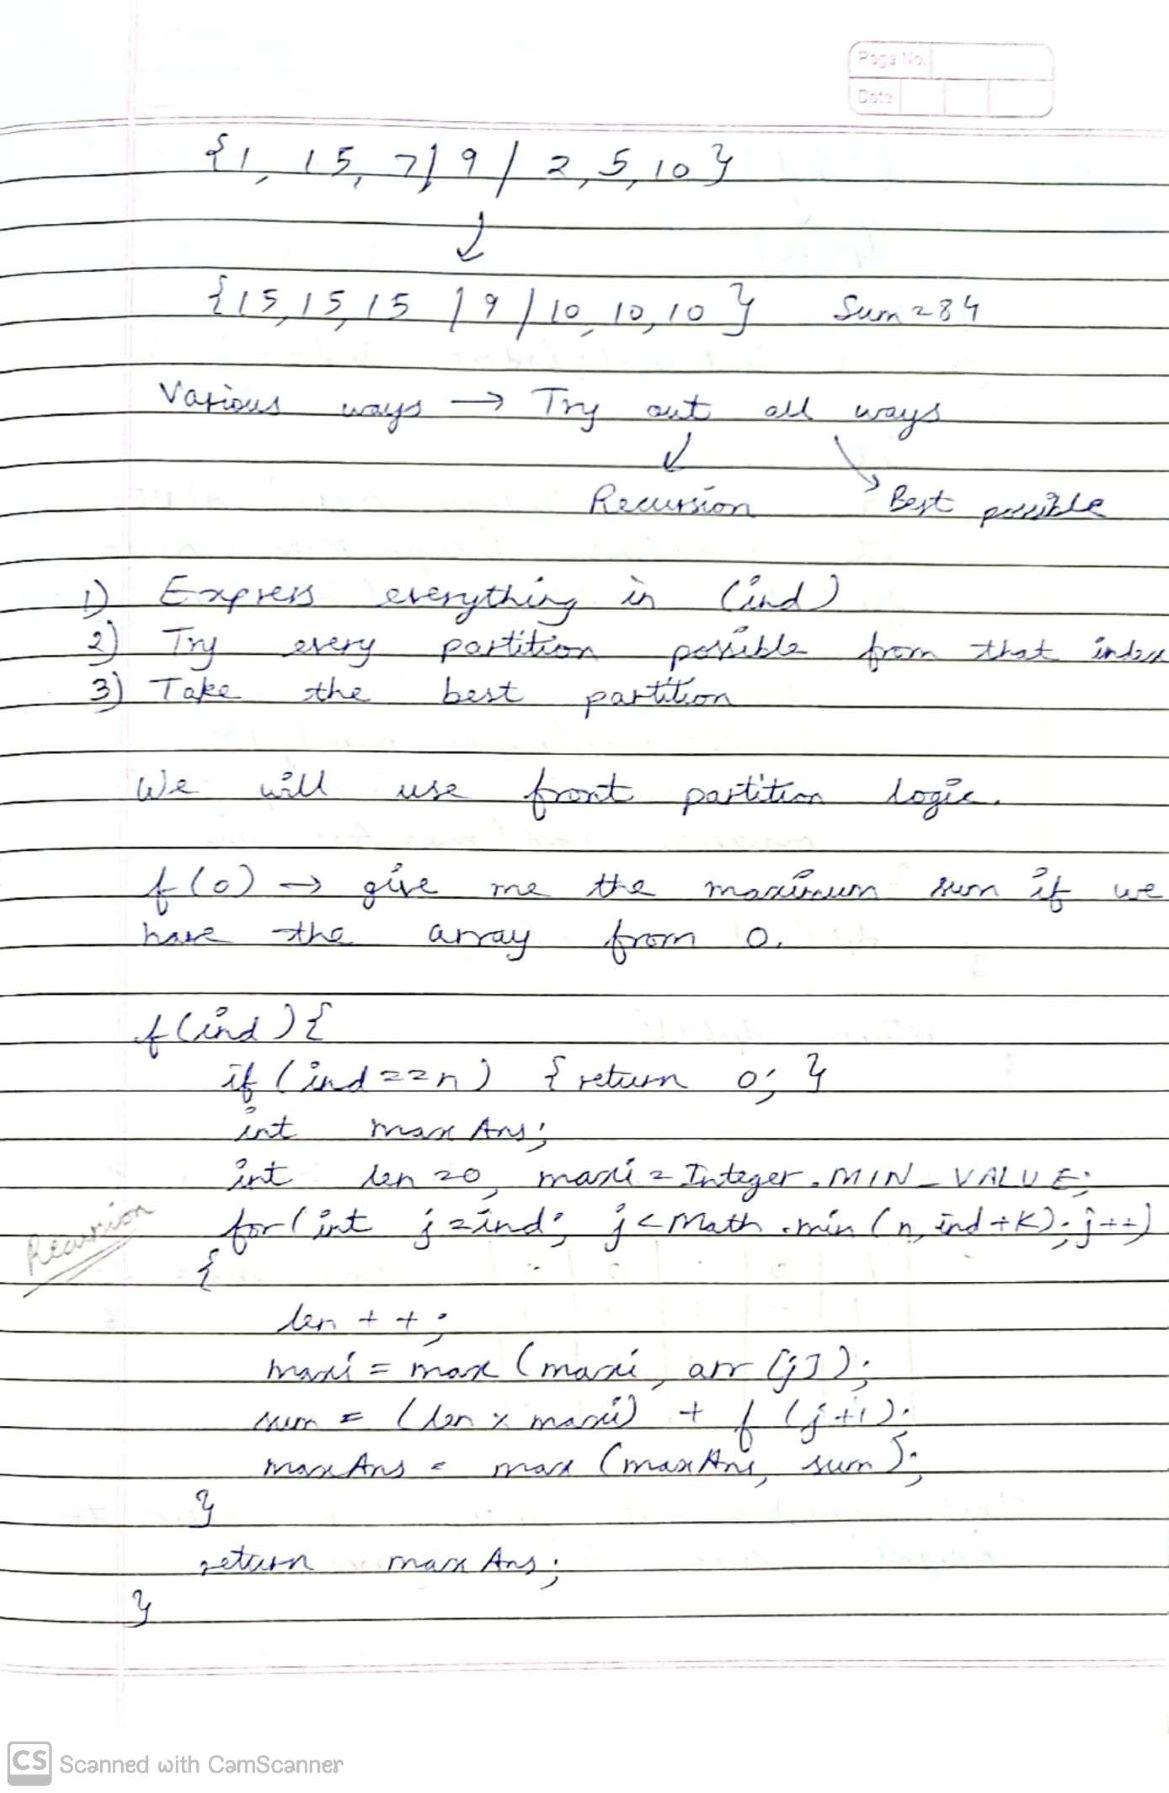 Page No.
Date
{1, 15, 7/ 9 / 2, 5, 10}
↓
{15, 15, 15 / 9 / 10, 10, 10} Sum = 84
Various ways → Try out all ways
↓ ↘
Recursion Best possible
1) Express everything in (ind)
2) Try every partition possible from that index
3) Take the best partition
We will use front partition logic.
f(0) → give me the maximum sum if we
have the array from 0.
f(ind){
if (ind == n) { return 0; }
int maxAns;
int len = 0, maxi = Integer.MIN_VALUE;
Recursion
for(int j = ind; j < Math.min(n, ind + K); j++)
{
len ++;
maxi = max (maxi, arr [j]);
sum = (len × maxi) + f (j+1);
maxAns = max (maxAns, sum);
}
return maxAns;
}
CS Scanned with CamScanner